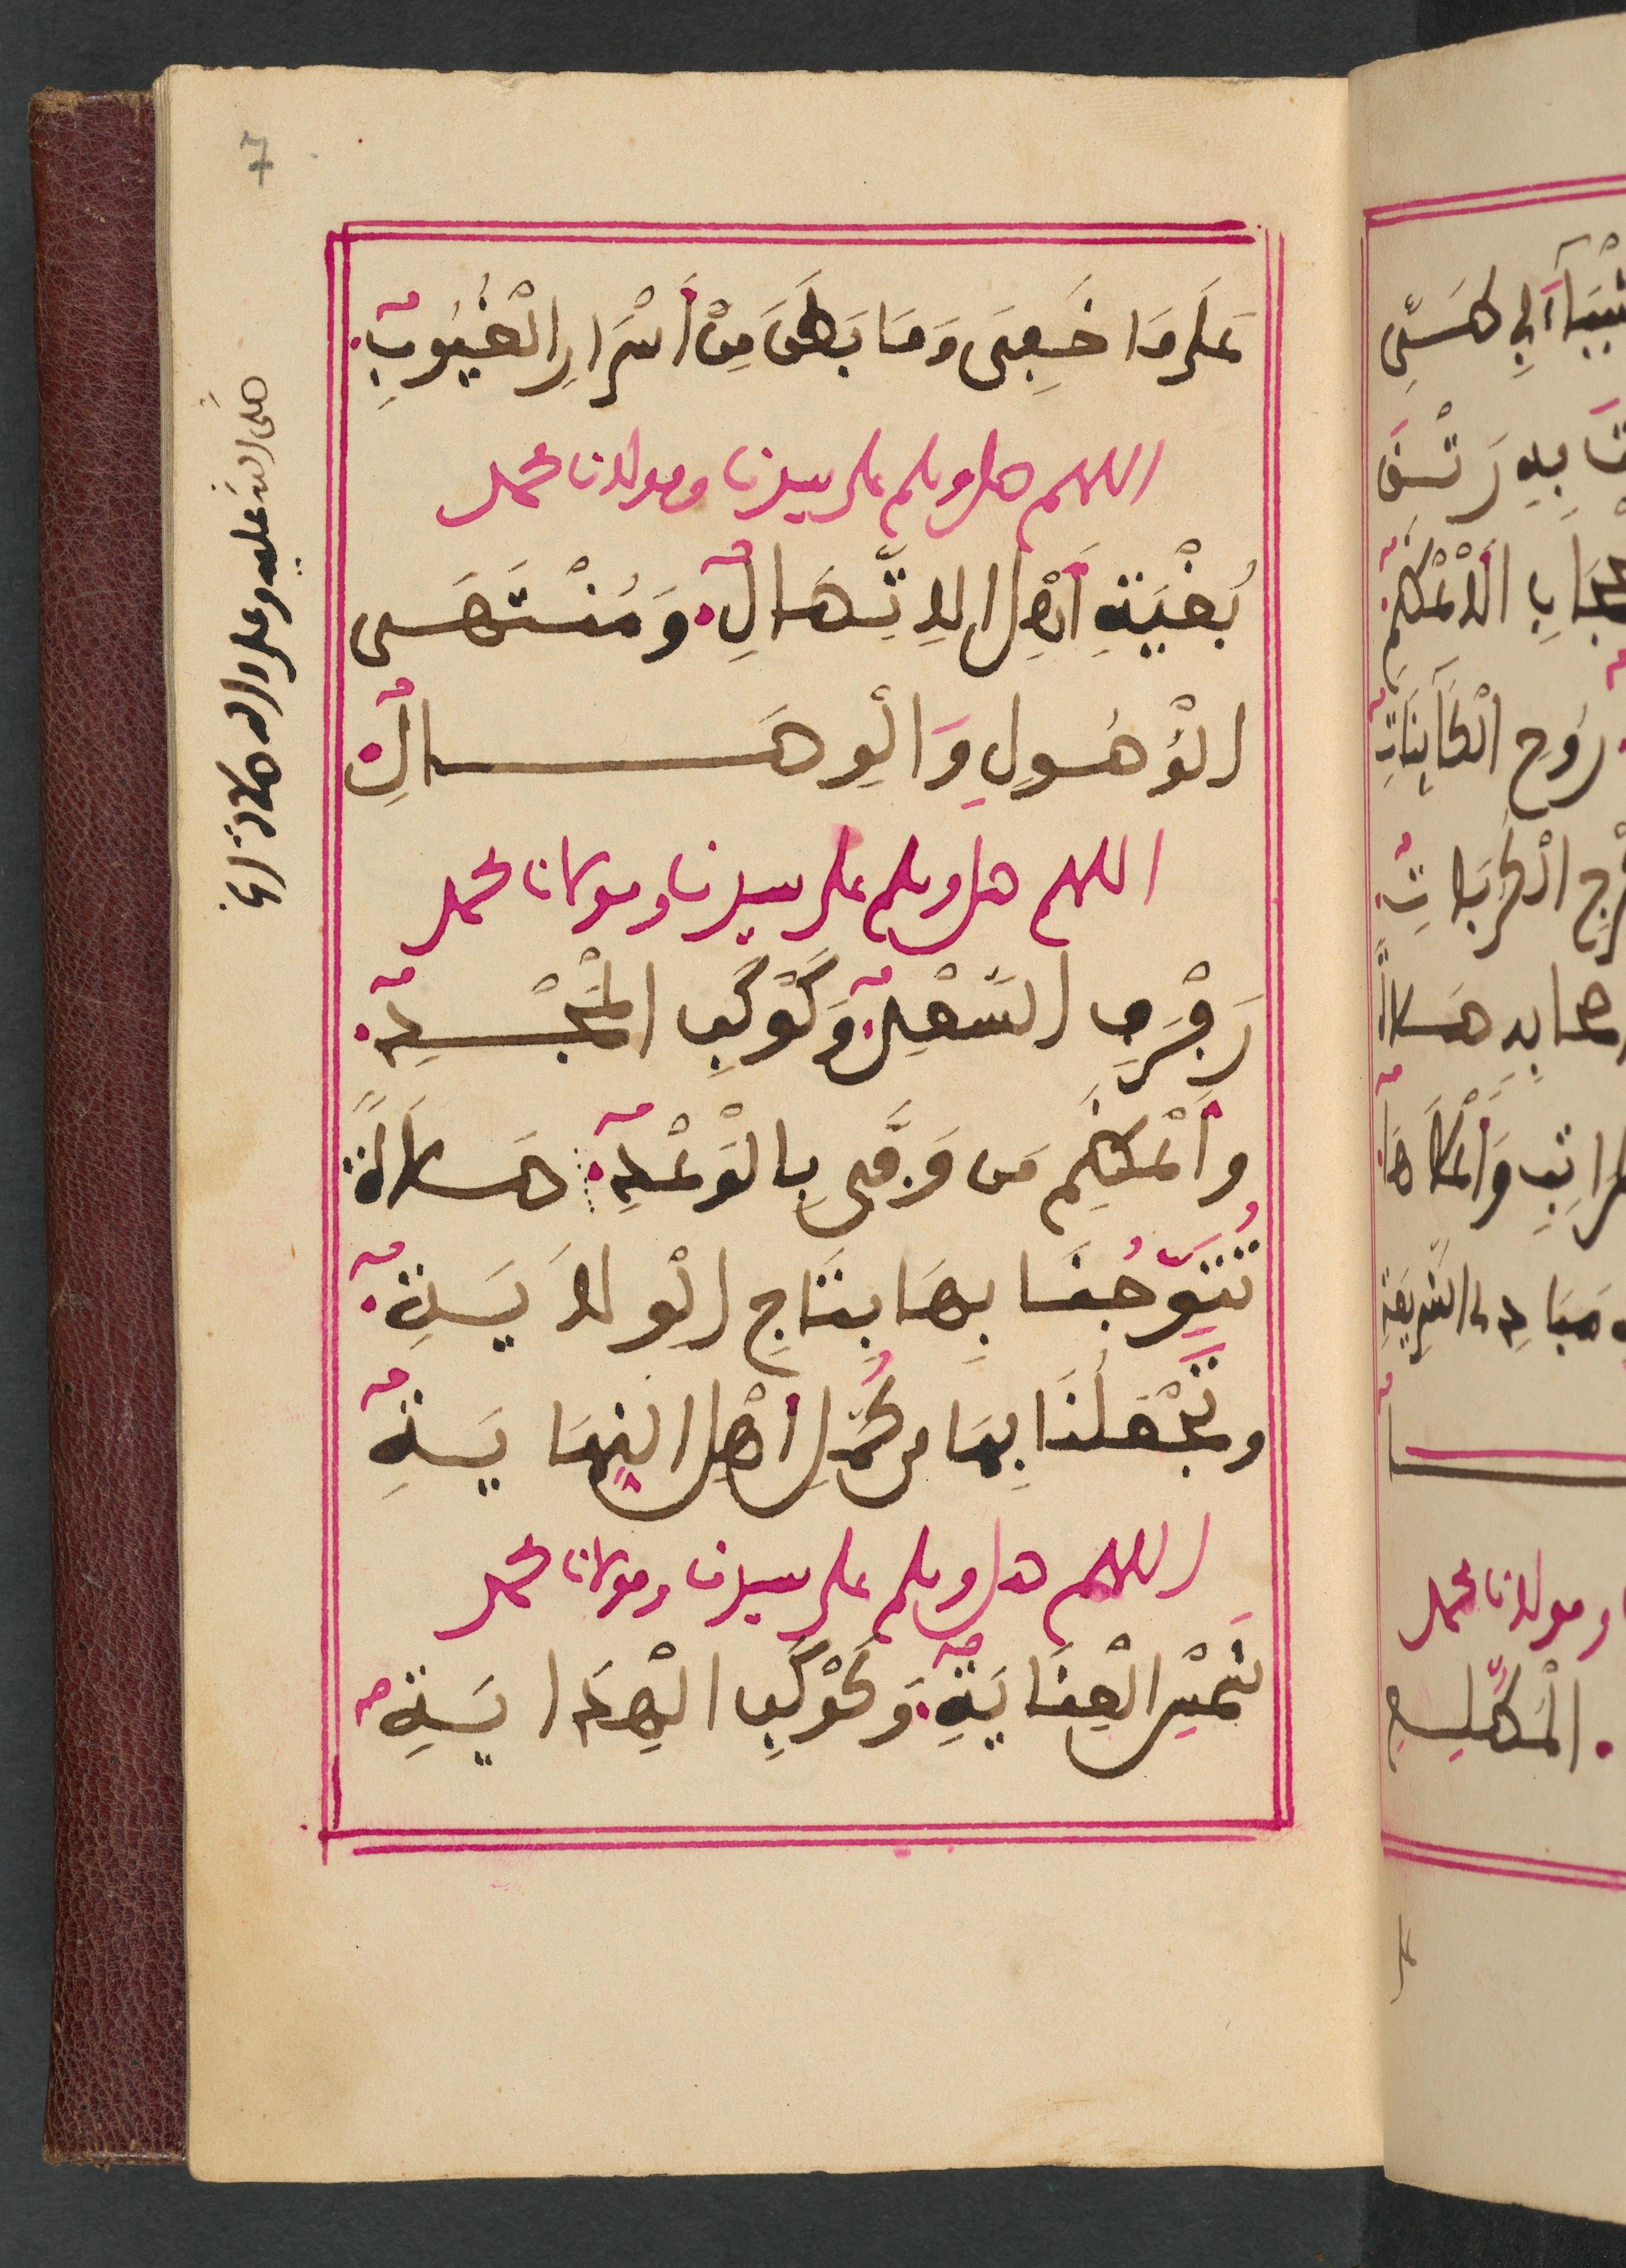 7
عَلَى مَا خَفِيَ وَمَا بَطَنَ مِنْ أَسْرَارِ الْغُيُوبِ
اللهم صل وسلم على سيدنا ومولانا محمد
بُغْيَةِ أَهْلِ الِاتِّصَالِ وَمُنْتَهَى
الْوُصُولِ وَالْوِصَالِ
اللهم صل وسلم على سيدنا ومولانا محمد
رَفْرَفِ السَّعْدِ وَكَوْكَبِ الْمَجْدِ
وَأَعْظَمِ مَن وَفَّى بِالْوَعْدِ صَلَاةً
تُتَوِّجُنَا بِهَا بِتَاجِ الْوِلَايَةِ
وتَجْعَلُنَا بِهَا من كُمَّلِ أَهْلِ النِّهَايَةِ
اللهم صل وسلم على سيدنا ومولانا محمد
شَمْسِ الْعِنَايَةِ وَكَوْكَبِ الْهِدَايَةِ
صلى الله عليه وعلى ءاله صلاة
رُوحِ الْكَائِنَاتِ
ومولانا محمد